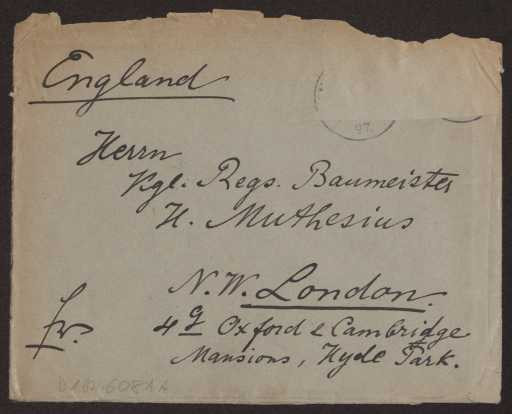 England
97.
Herrn
Kgl. Regs. Baumeister
H. Muthesius
N.W. London.
fr.
4 g Oxford & Cambridge
Mansions, Hyde Park.